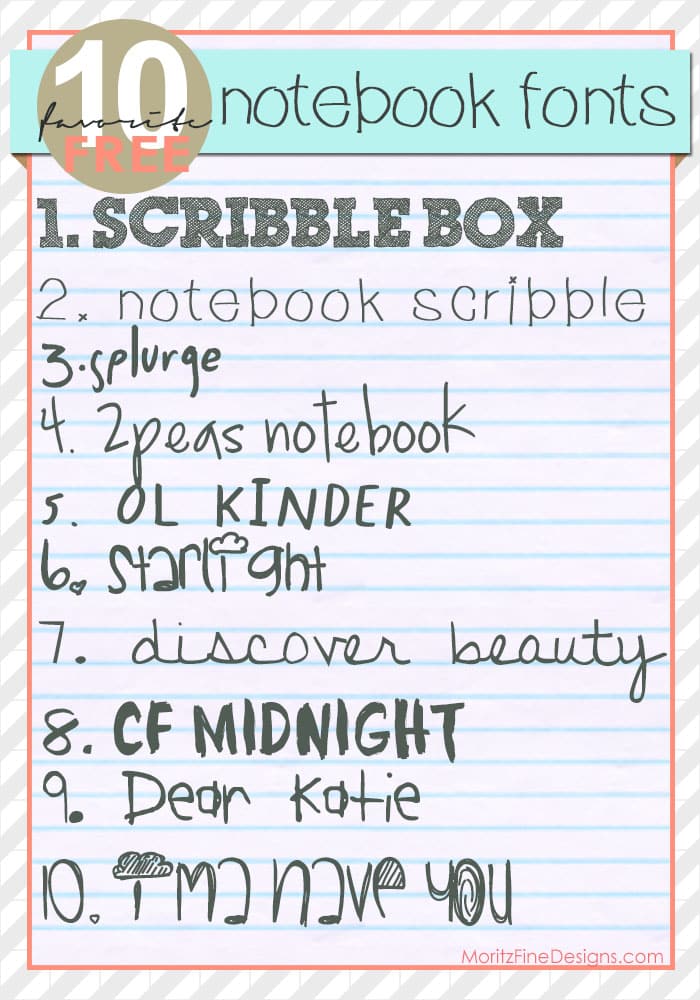 10 notebook fonts
favorite
FREE
1. SCRIBBLE BOX
2. notebook scribble
3. splurge
4. 2peas notebook
5. OL KINDER
6. starlight
7. discover beauty
8. CF MIDNIGHT
9. Dear Katie
10. i'ma have you
MoritzFineDesigns.com